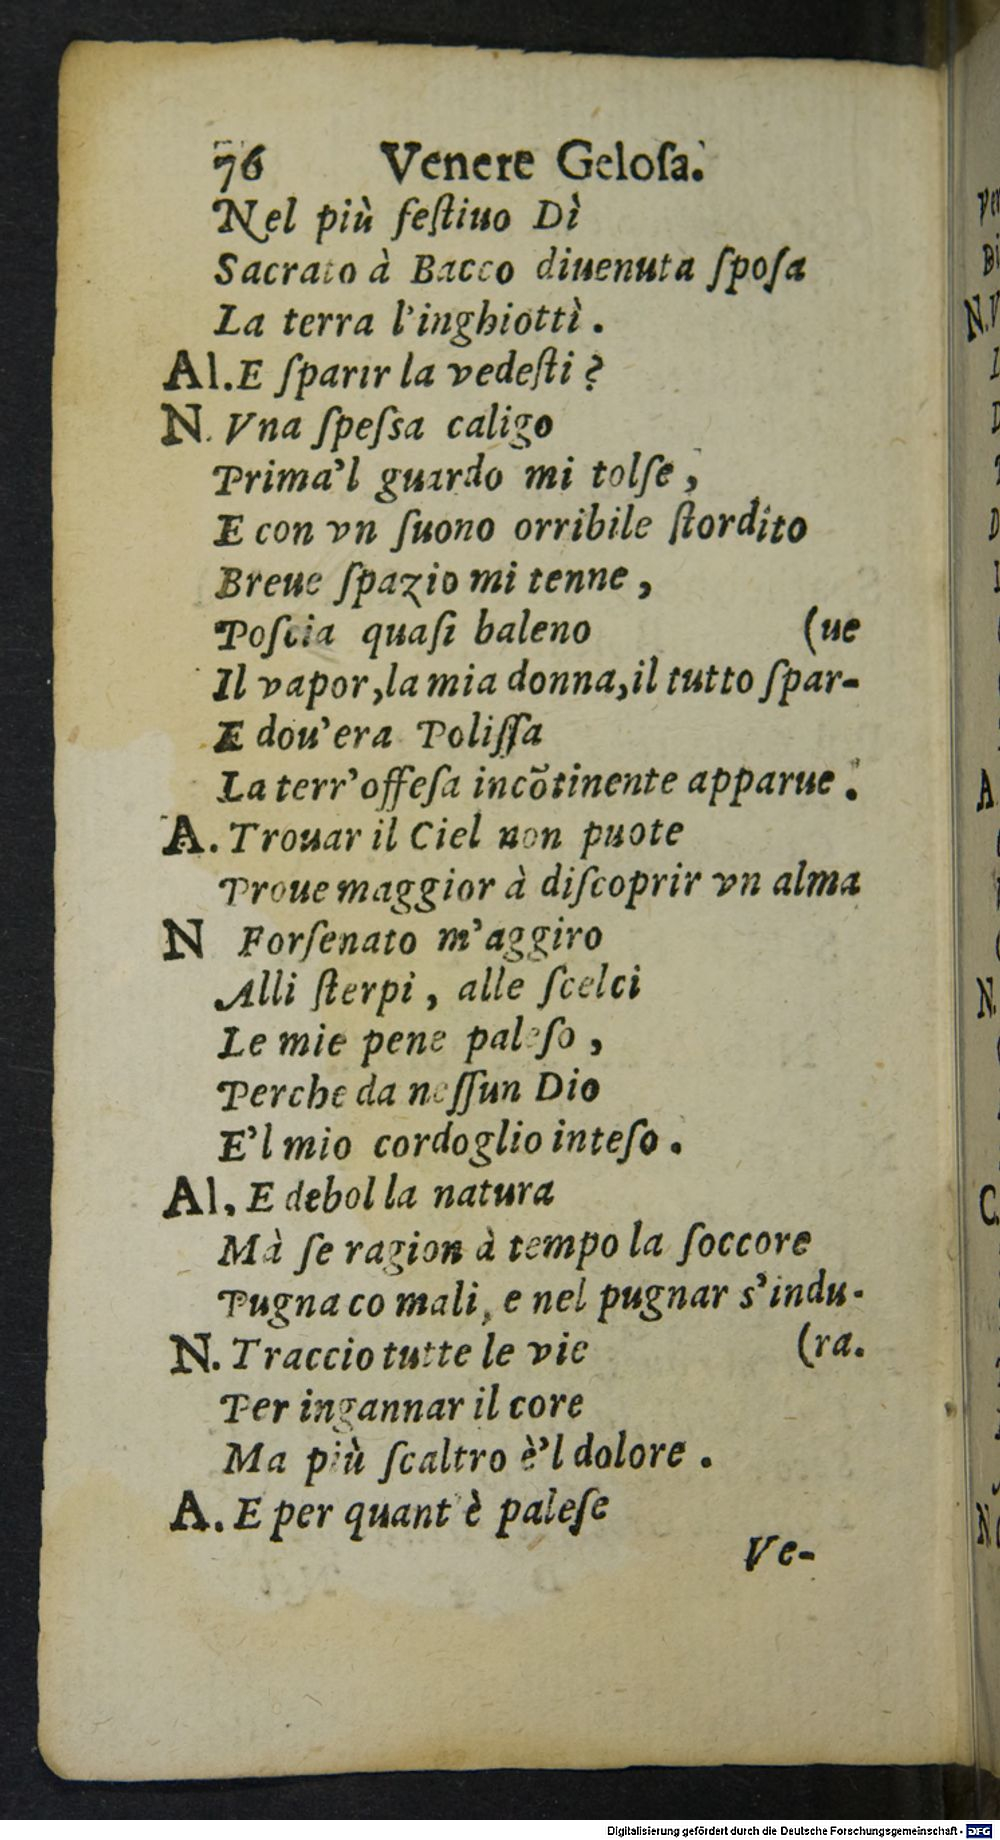 76 Venere Geloſa.
Nel più feſtiuo Dì
Sacrato à Bacco diuenuta ſpoſa
La terra l'inghiottì .
Al. E ſparir la vedeſti ?
N. Vna ſpeſsa caligo
Prima'l guardo mi tolſe ,
E con vn ſuono orribile ſtordito
Breue ſpazio mi tenne ,
Poſcia quaſi baleno (ue
Il vapor,la mia donna,il tutto ſpar-
E dou'era Poliſſa
La terr'offeſa incõtinente apparue .
A. Trouar il Ciel non puote
Proue maggior à diſcoprir vn alma
N Forſenato m'aggiro
Alli ſterpi , alle ſcelci
Le mie pene paleſo ,
Perche da neſſun Dio
E'l mio cordoglio inteſo .
Al. E debol la natura
Mà ſe ragion à tempo la ſoccore
Pugna co mali, e nel pugnar s'indu-
N. Traccio tutte le vie (ra.
Per ingannar il core
Ma più ſcaltro è'l dolore .
A. E per quant'è paleſe
Ve-
Digitalisierung gefördert durch die Deutsche Forschungsgemeinschaft - DFG